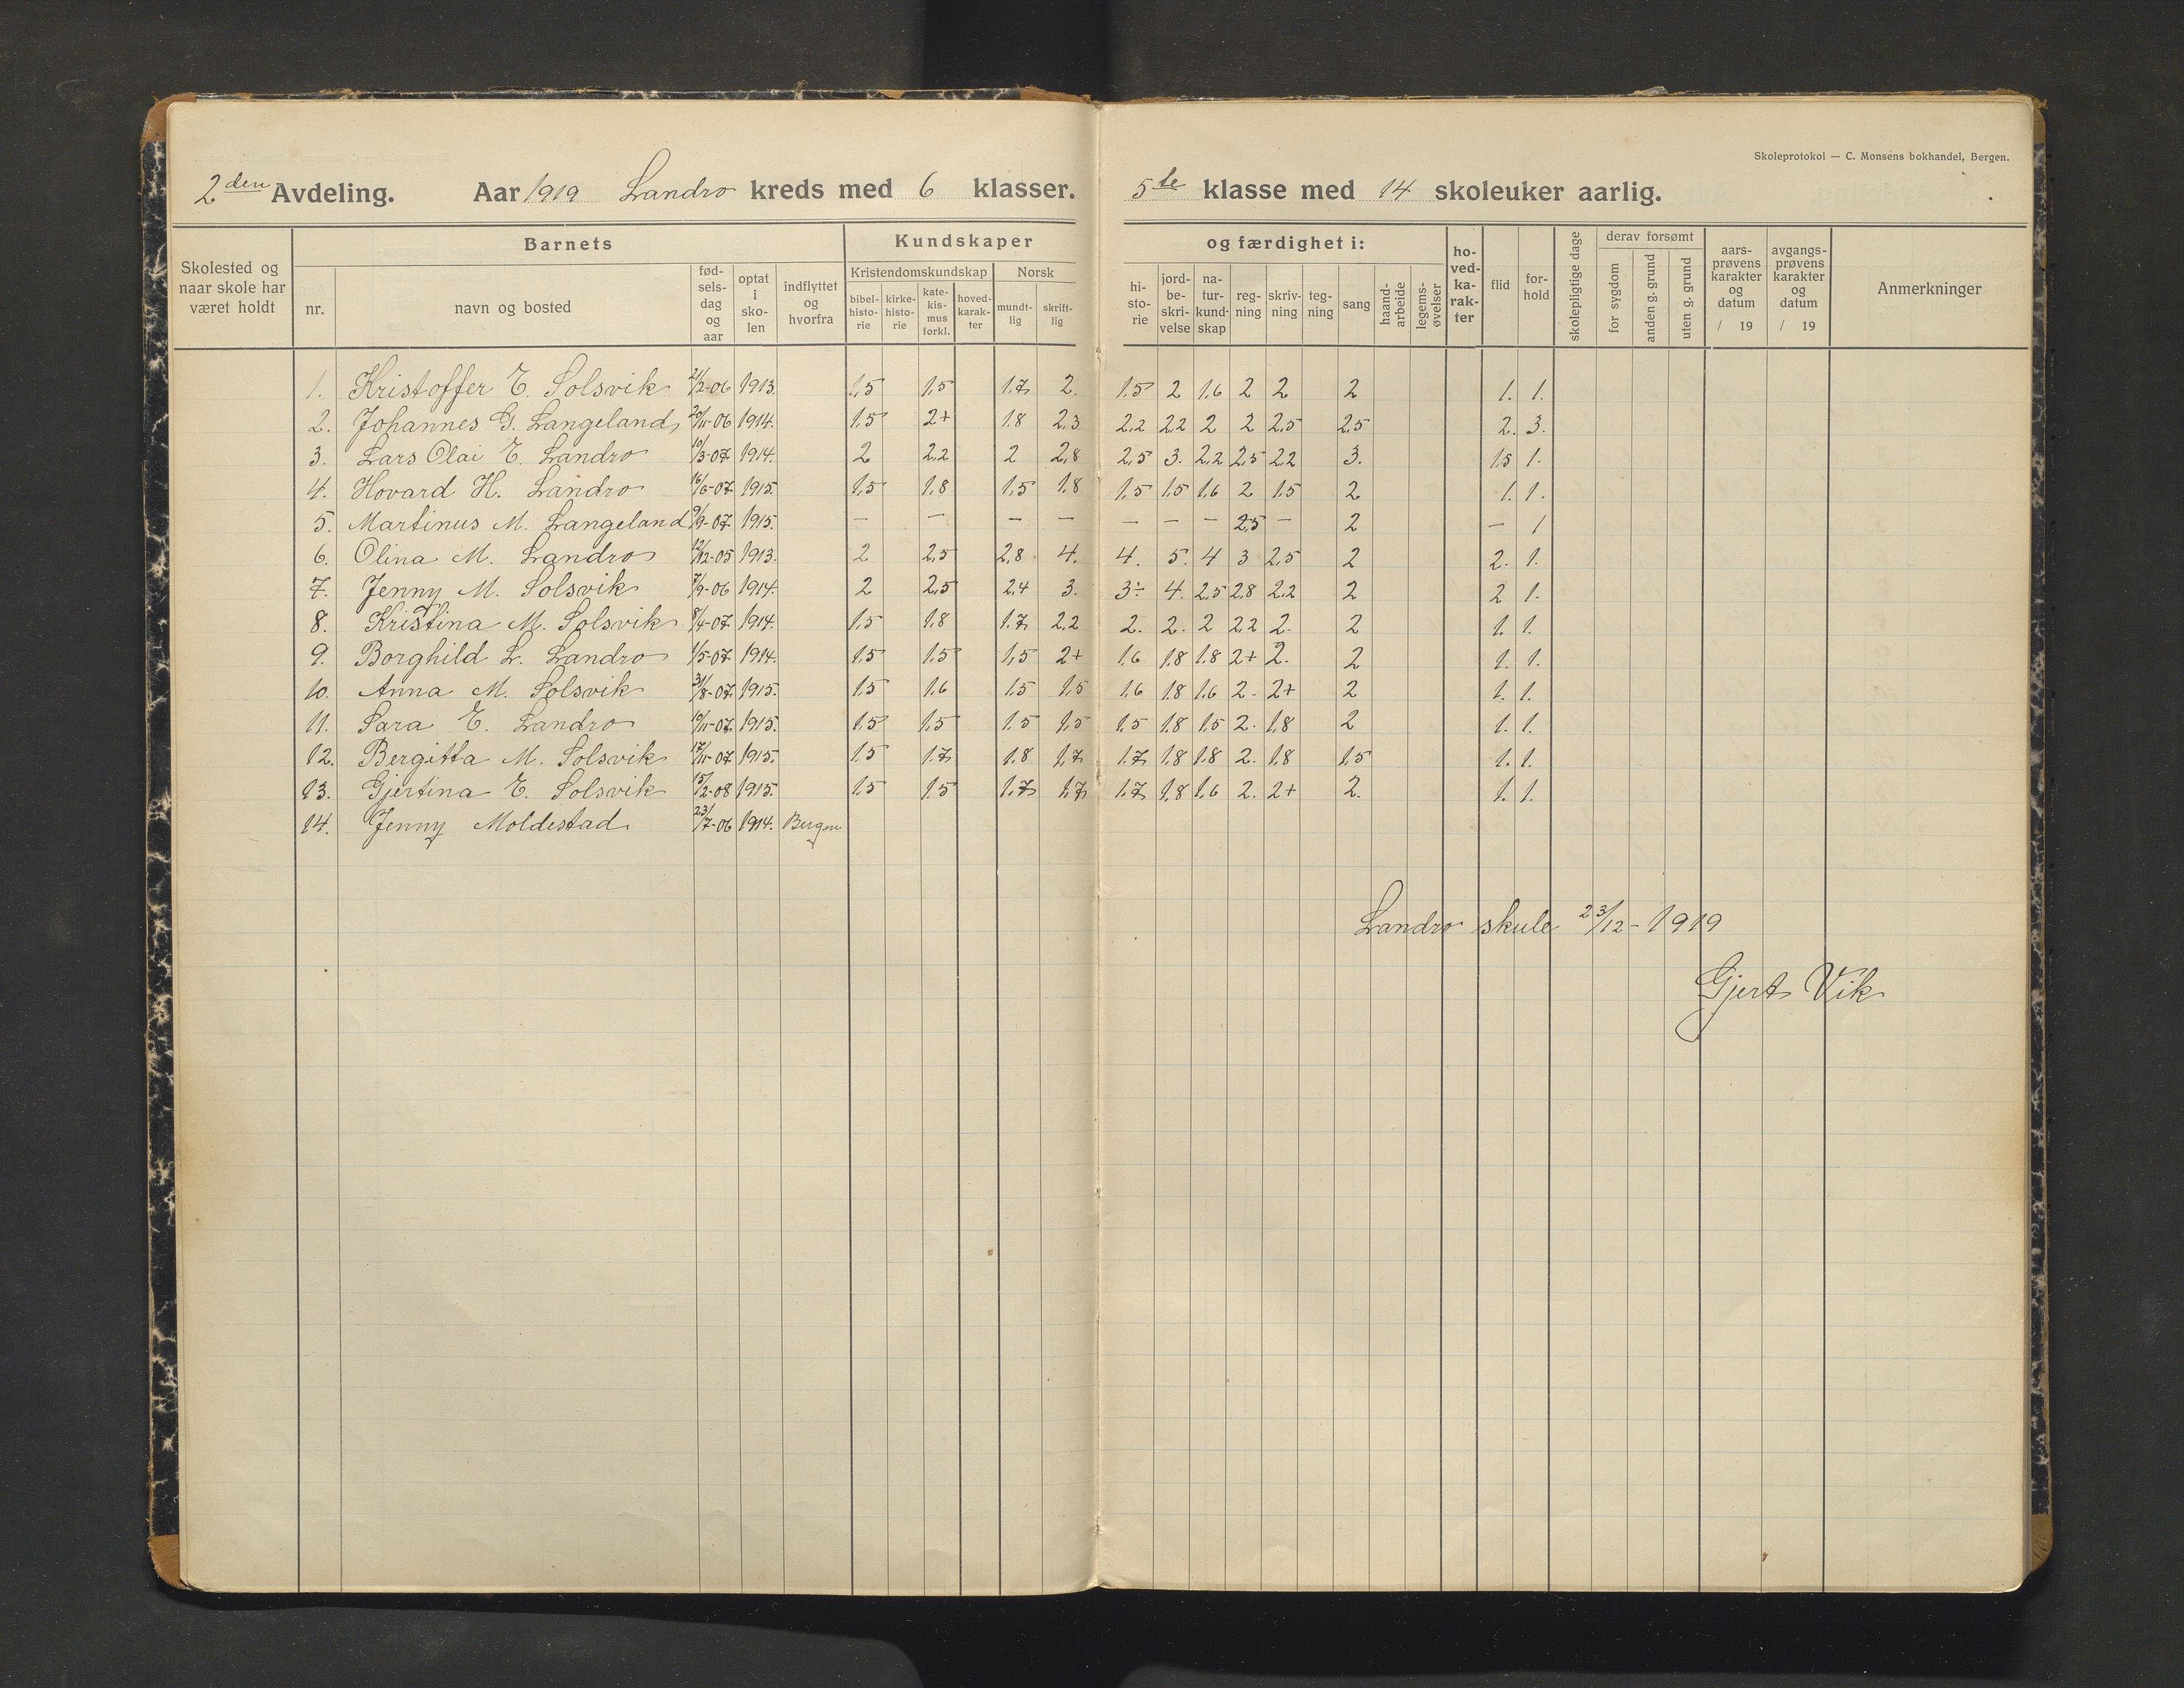 Skoleprotokol — C. Monsens bokhandel, Bergen.
2den Avdeling. Aar 1919 Landro kreds med 6 klasser. 5te klasse med 14 skoleuker aarlig.
Skolested og naar skole har været holdt
Barnets
nr. navn og bosted fødselsdag og aar optat i skolen indflyttet og hvorfra
Kundskaper og færdighet i:
Kristendomskundskap Norsk
bibelhistorie kirkehistorie katekismus forkl. hovedkarakter mundtlig skriftlig
historie jordbeskrivelse naturkundskap regning skrivning tegning sang haandarbeide legemsøvelser
hovedkarakter flid forhold skolepligtige dage
derav forsømt
for sygdom anden g. grund uten g. grund
aarsprøvens karakter og datum / 19
avgangsprøvens karakter og datum / 19
Anmerkninger
1. Kristoffer E. Solsvik 21/2-06 1913. 1,5 1,5 1,7 2. 1,5 2 1,6 2 2 2 1. 1.
2. Johannes G. Langeland 20/11-06 1914. 1,5 2+ 1,8 2,3 2,2 2,2 2 2 2,5 2,5 2. 3.
3. Lars Olai E. Landro 10/3-07 1914. 2 2,2 2 2,8 2,5 3. 2,2 2,5 2,2 3. 1,5 1.
4. Hovard H. Landro 16/6-07 1915. 1,5 1,8 1,5 1,8 1,5 1,5 1,6 2 1,5 2 1. 1.
5. Martinus M. Langeland 9/9-07 1915. — — — — — — — 2,5 — 2 — 1
6. Olina M. Landro 12/12-05 1913. 2 2,5 2,8 4. 4. 5. 4 3 2,5 2 2. 1.
7. Jenny M. Solsvik 7/9-06 1914. 2 2,5 2,4 3. 3÷ 4. 2,5 2,8 2,2 2 2 1.
8. Kristina M. Solsvik 8/4-07 1914. 1,5 1,8 1,7 2,2 2. 2. 2 2,2 2. 2 1. 1.
9. Borghild L. Landro 1/5-07 1914. 1,5 1,5 1,5 2+ 1,6 1,8 1,8 2+ 2. 2 1. 1.
10. Anna M. Solsvik 31/8-07 1915. 1,5 1,6 1,5 1,5 1,6 1,8 1,6 2- 2+ 2 1. 1.
11. Sara E. Landro 10/11-07 1915. 1,5 1,5 1,5 1,5 1,5 1,8 1,5 2. 1,8 2 1. 1.
12. Bergitta M. Solsvik 17/11-07 1915. 1,5 1,7 1,8 1,7 1,7 1,8 1,8 2. 1,8 1,5 1. 1.
13. Gjertina E. Solsvik 15/2-08 1915. 1,5 1,5 1,7 1,7 1,7 1,8 1,6 2. 2+ 2. 1. 1.
14. Jenny Moldestad 23/7-06 1914. Bergen
Landro skule 23/12-1919
Gjert Vik